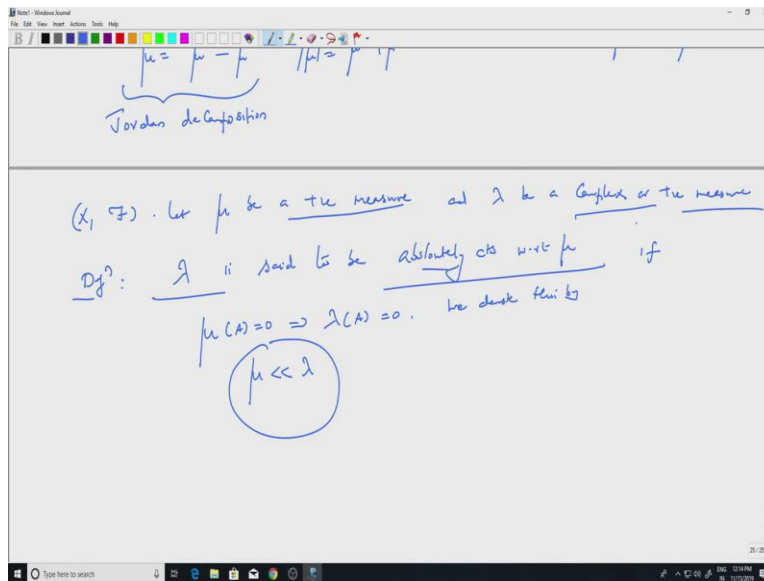 Note1 - Windows Journal
File Edit View Insert Actions Tools Help
μ = μ - μ |μ| = μ
Jordan decomposition
(X, F). Let μ be a +ve measure and λ be a Complex or +ve measure
Defⁿ: λ is said to be absolutely cts w.r.t μ if
μ(A)=0 ⇒ λ(A)=0. We denote this by
μ << λ
25/25
Type here to search
ENG 12:14 PM
IN 11/15/2019